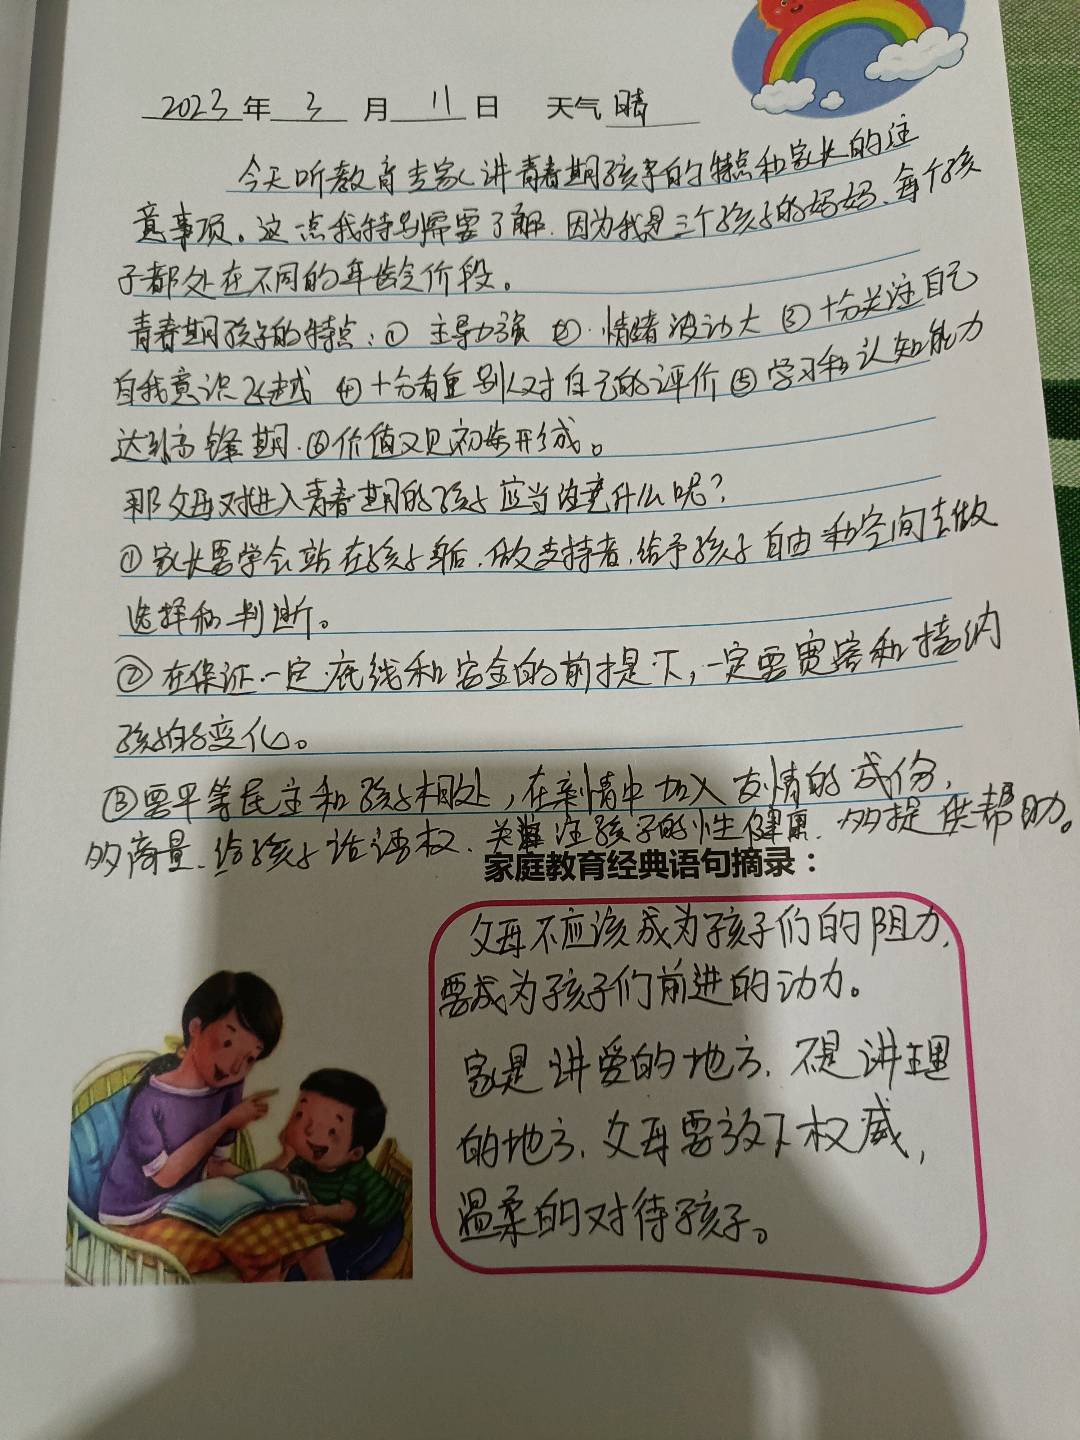 2023年3月11日 天气晴
今天听教育专家讲青春期孩子的特点和家长的注
意事项。这一点我特别需要了解.因为我是三个孩子的妈妈、每个孩
子都处在不同的年龄阶段。
青春期孩子的特点:① 主导力强 ②.情绪波动大 ③十分关注自己
自我意识 ④十分看重别人对自己的评价 ⑤学习和认知能力
达到高锋期.⑥价值观初步形成。
那父母对进入青春期的孩子应当注意什么呢?
①家长要学会站在孩子身后.做支持者.给予孩子自由和空间去做
选择和判断。
②在保证一定底线和安全的前提下,一定要宽容和接纳
孩子的变化。
③要平等民主和孩子相处,在亲情中加入友情的成份,
多商量.给孩子话语权.关注孩子的性健康.多提供帮助。
家庭教育经典语句摘录:
父母不应该成为孩子们的阻力,
要成为孩子们前进的动力。
家是讲爱的地方.不是讲理
的地方.父母要放下权威,
温柔的对待孩子。